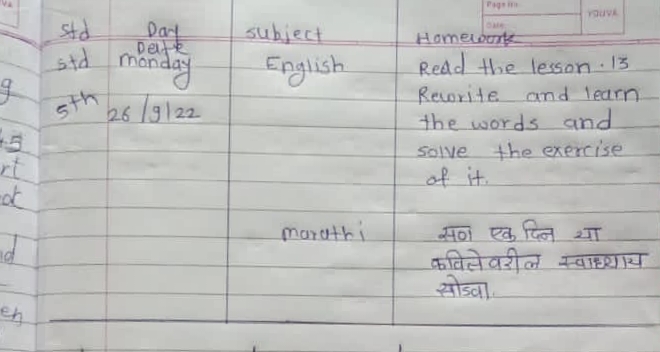 Page No.
Date
YOUVA
std Day Date subject Homework
std monday English Read the lesson. 13
5th 26/9/22 Rewrite and learn
the words and
solve the exercise
of it.
marathi सण एक दिन या
कवितेवरील स्वाध्याय
सोडवा.